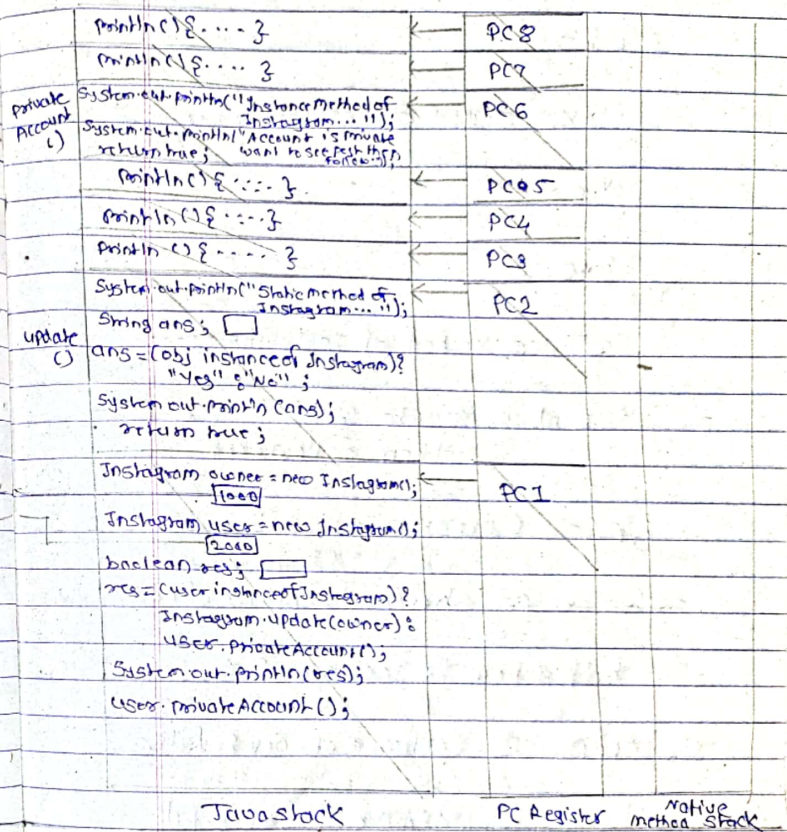 println() { .... }
PC8
println() { .... }
PC7
private Account ()
System.out.println("Instance Method of
Instagram...!!");
PC6
System.out.println("Account is private
want to see post then
follow..");
return true;
println() { .... }
PC5
println() { .... }
PC4
println () { .... }
PC3
System.out.println("Static method of
Instagram...!!");
PC2
update ()
String ans;
ans = (obj instanceof Instagram)?
"Yes" : "No" ;
System out.println (ans);
return true ;
Instagram owner = new Instagram();
1000
PC1
Instagram user = new Instagram();
2000
boolean res;
res = (user instanceof Instagram)?
Instagram.update(owner) :
user.privateAccount();
System.out.println(res);
user.privateAccount();
Java stack
PC Register
Native
Method Stack